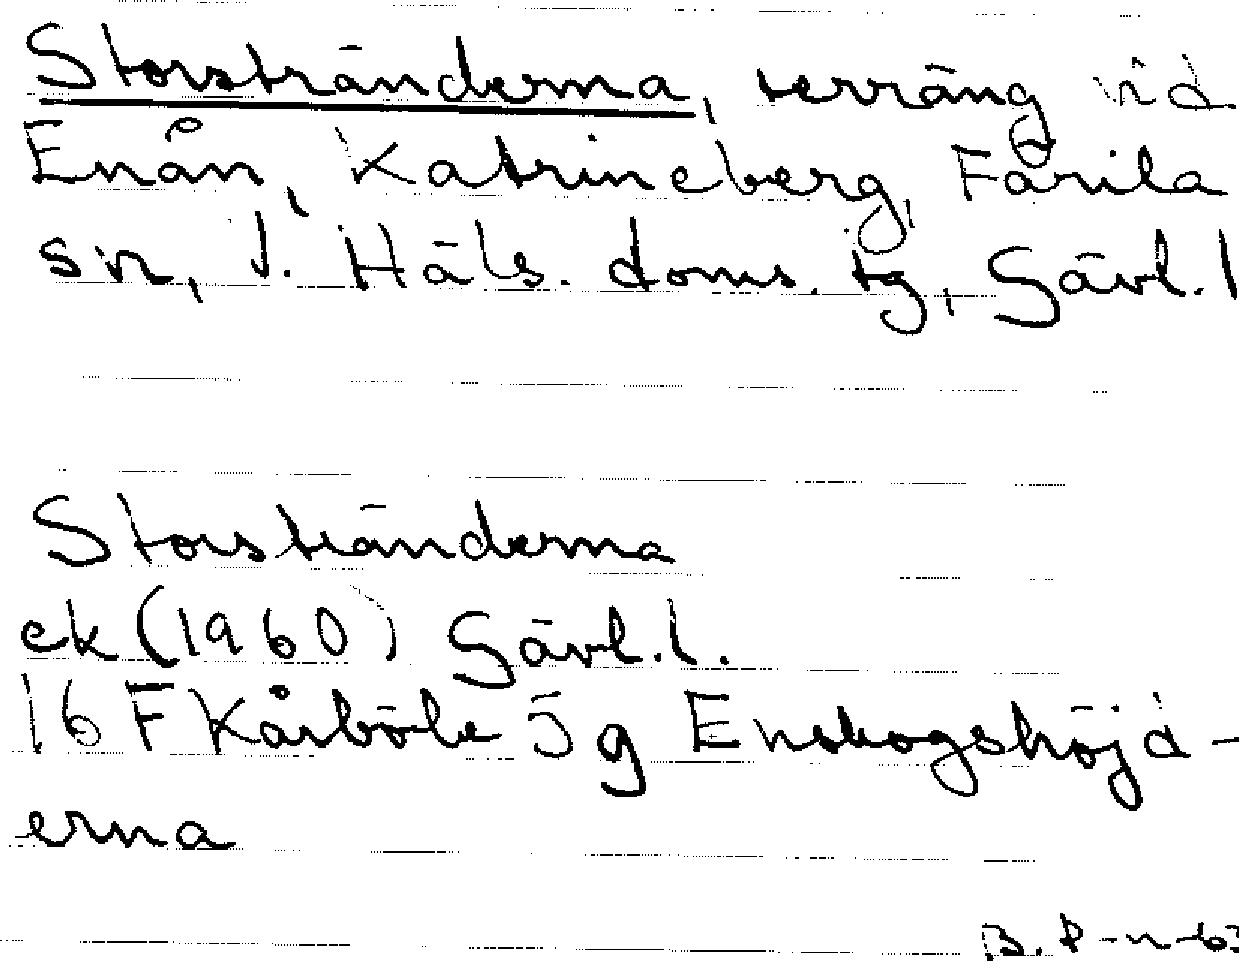 Storstränderna, terräng vid
Enån, Katrineberg, Färila
sn, V. Häls. doms. tg, Gävl. l
Storstränderna
ek (1960) Gävl. l.
16 F Kårböle 5 g Enskogshöjd-
erna
B. P-n-63